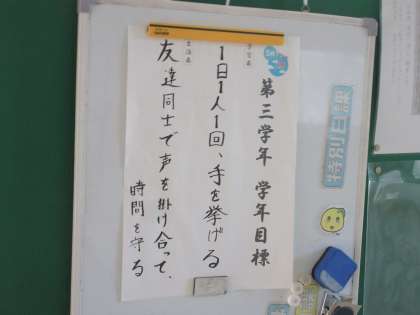 第三学年 学年目標
学習面
1日1人1回、手を挙げる
生活面
友達同士で声を掛け合って、
時間を守る
特別日課